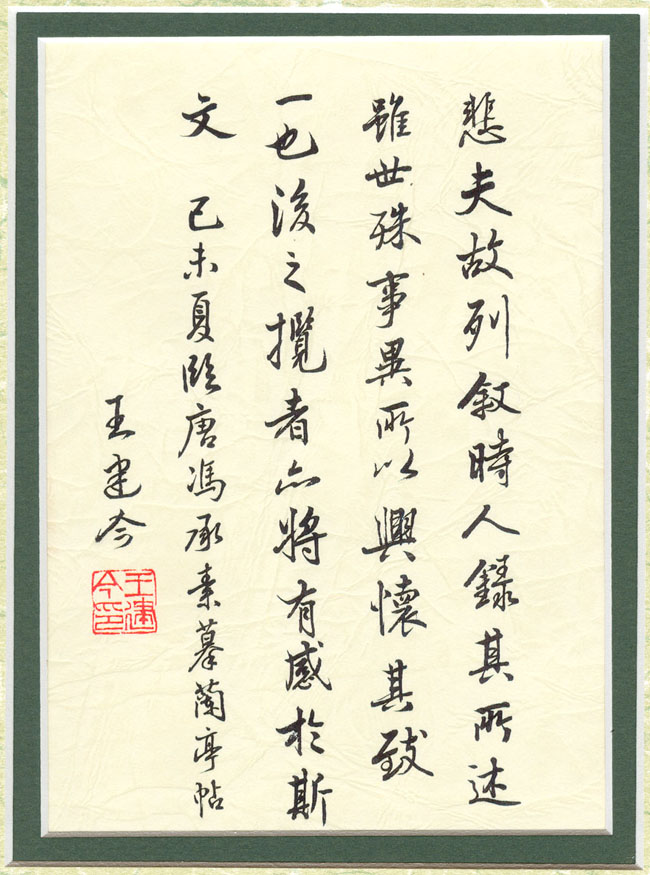 悲夫故列叙時人錄其所述
雖世殊事異所以興懷其致
一也後之攬者亦將有感於斯
文 己未夏臨唐馮承素摹蘭亭帖
王建今
王建今印